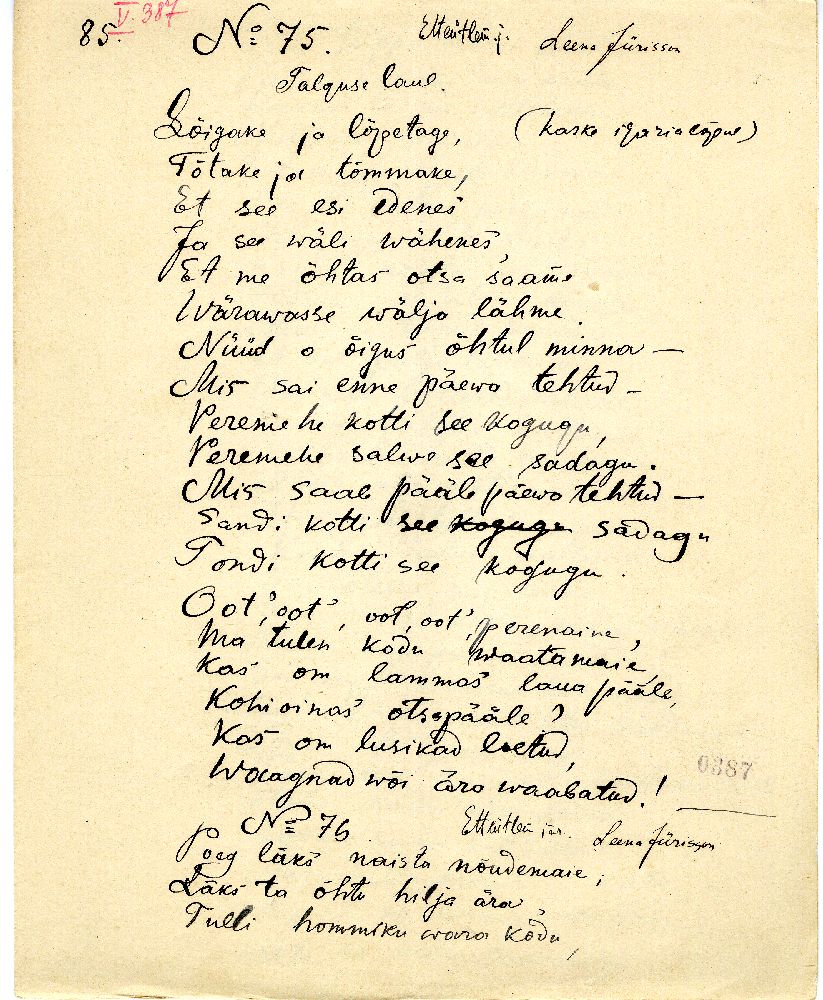 85. V. 387
No 75. Etteütleja: Leena Jürisson
Talguse laul.
Lõigake ja lõpetage, (kaske
Tõtake ja tõmmake,
Et see esi edenes
Ja see wäli wähenes,
Et me õhtas otsa saame
Wärawasse wälja lähme.
Nüüd o õigus õhtul minna —
Mis sai enne päewa tehtud —
Peremehe kotti see kogugu,
Peremehe salwe see sadagu.
Mis saab pääle päewa tehtud —
Sandi kotti see kogugu sadagu
Tondi kotti see kogugu.
Oot', oot', oot, oot', perenaine,
Ma tulen kodu waatamaie,
Kas om lammas laua pääle,
Kohioinas otsapääle?
Kas om lusikad loetud,
Waagnad wõi ära waabatud!
0387
No 76 Ettütleja. Leena Jürisson
Poeg läks naista nõudemaie,
Läks ta õhtu hilja ära,
Tulli hommiku wara kodu,